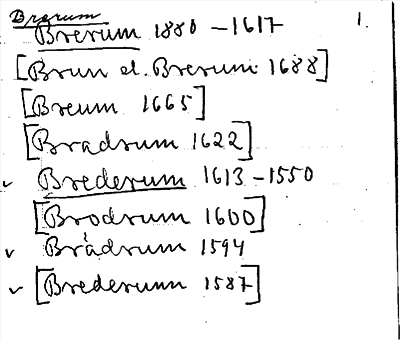 Brerum
Brerum 1880-1617 1.
[Brun el. Brerum 1688]
[Breum 1665]
[Bradrum 1622]
✓ Brederum 1613-1550
[Brodrum 1600]
✓ Brådrum 1594
✓ [Brederum 1587]